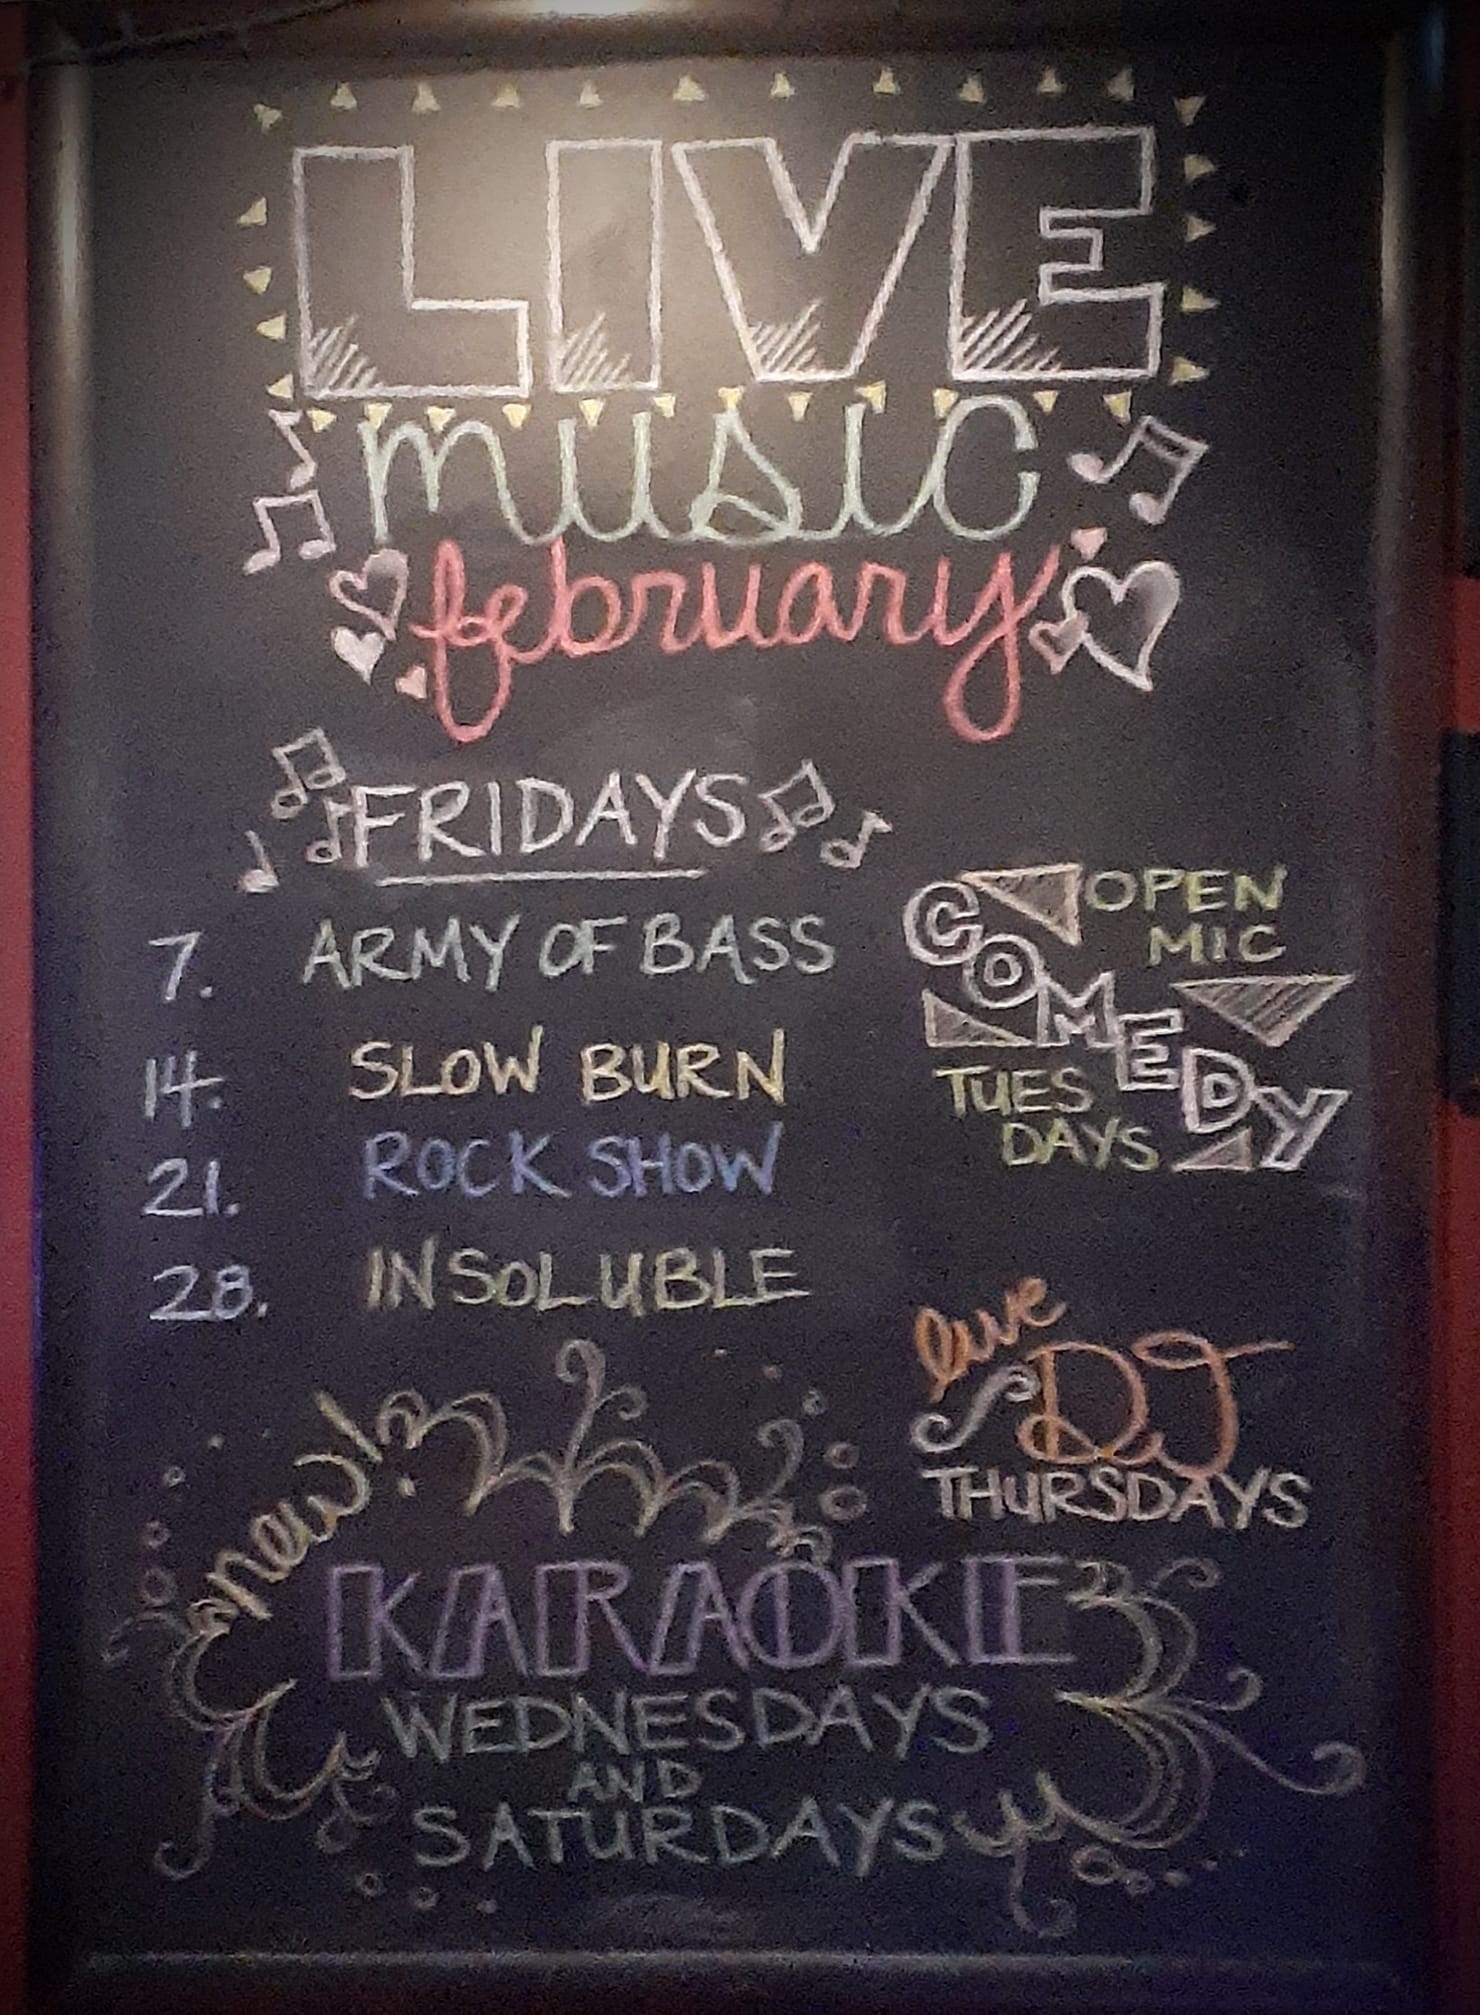 LIVE
music
february
FRIDAYS
7. ARMY OF BASS
14. SLOW BURN
21. ROCK SHOW
28. INSOLUBLE
OPEN
MIC
COMEDY
TUES
DAYS
live
DJ
THURSDAYS
new!
KARAOKE
WEDNESDAYS
AND
SATURDAYS